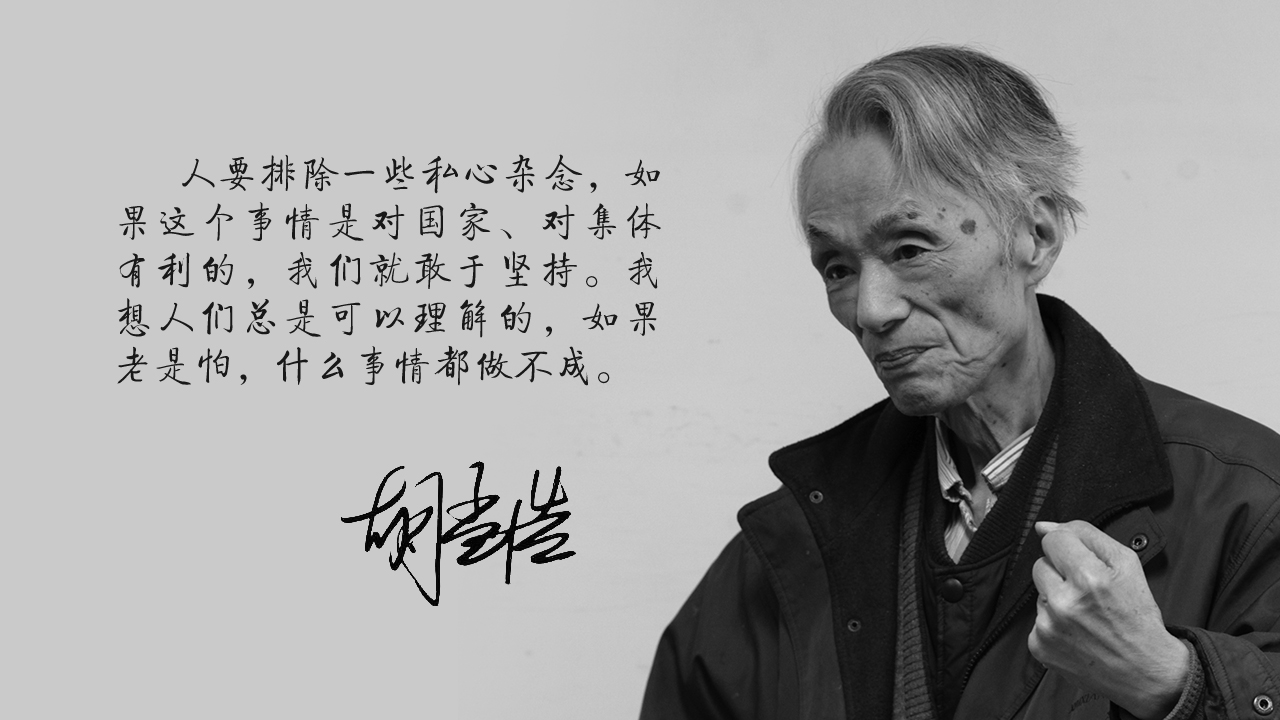 人要排除一些私心杂念，如
果这个事情是对国家、对集体
有利的，我们就敢于坚持。我
想人们总是可以理解的，如果
老是怕，什么事情都做不成。
胡福明